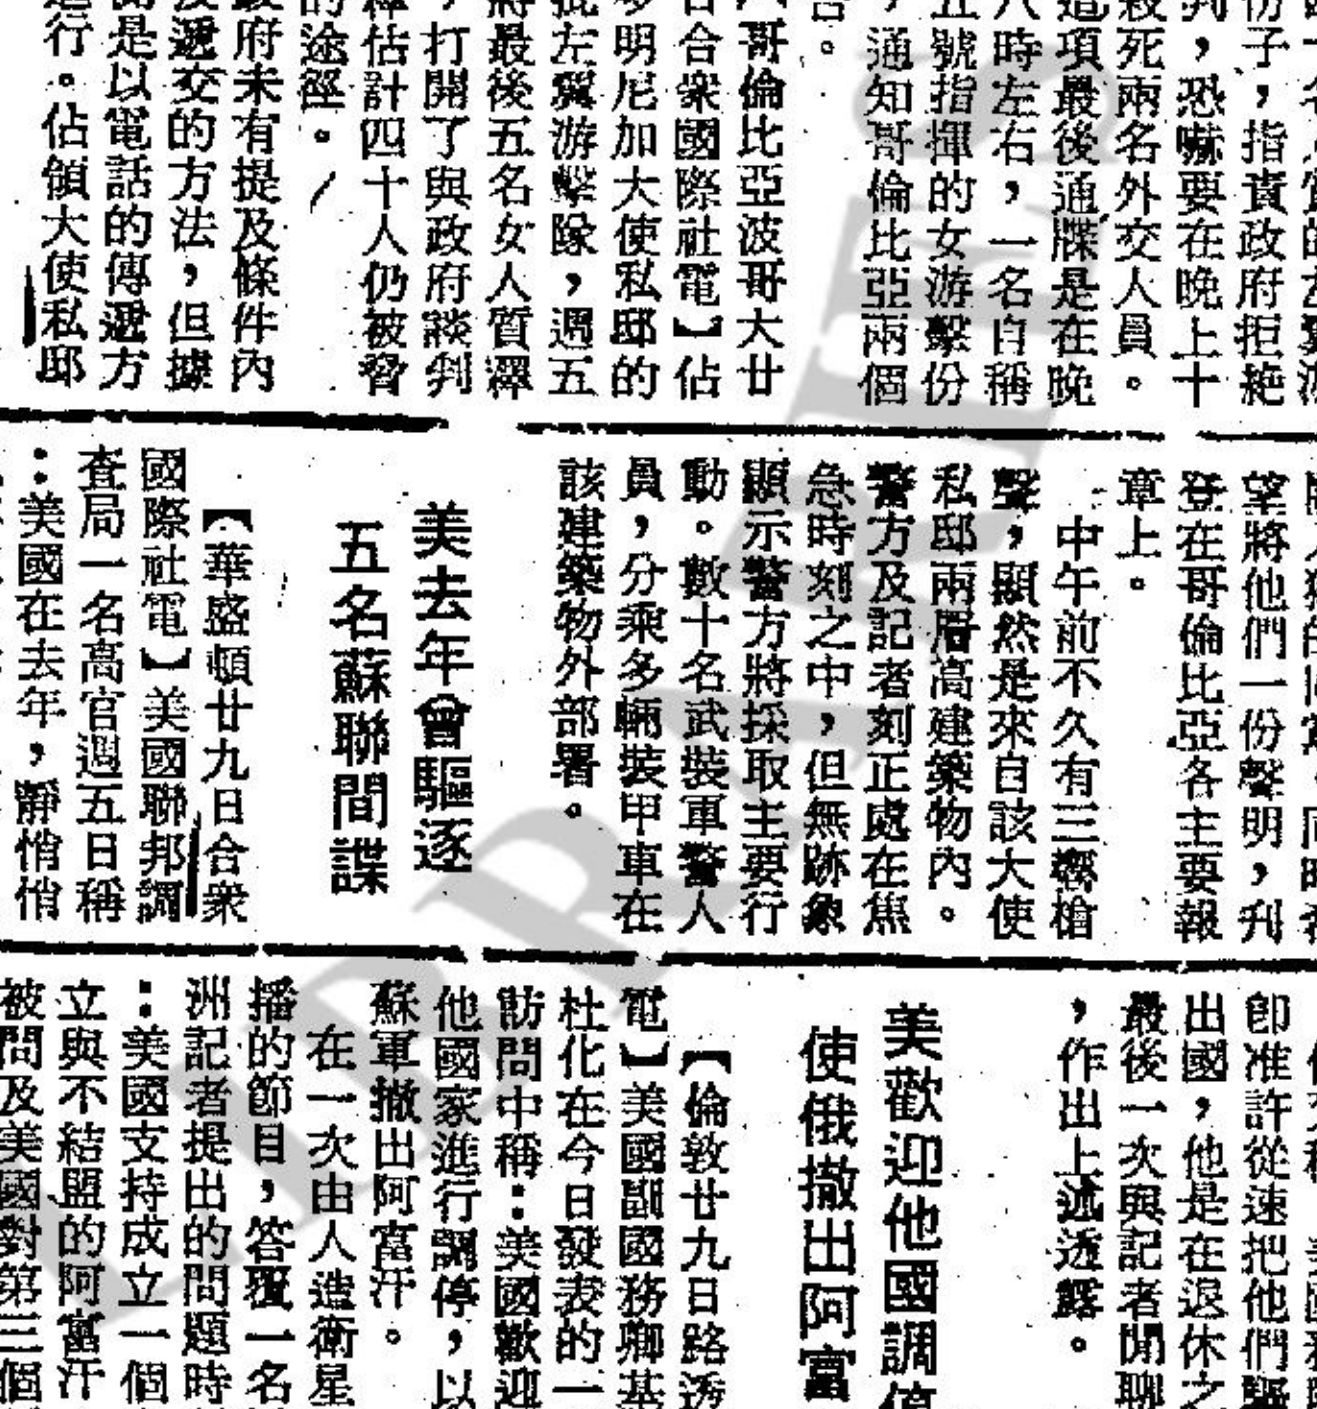 份子，指責政府拒絕
判，恐嚇要在晚上十
殺死兩名外交人員。
這項最後通牒是在晚
八時左右，一名自稱
五號指揮的女游擊份
，通知哥倫比亞兩個
。
哥倫比亞波哥大廿
合衆國際社電】佔
多明尼加大使私邸的
批左翼游擊隊，週五
將最後五名女人質釋
，打開了與政府談判
釋估計四十人仍被脅
的途徑。
政府未有提及條件內
及遞交的方法，但據
是以電話的傳遞方
行。佔領大使私邸
望將他們一份聲明，刋
登在哥倫比亞各主要報
章上。
中午前不久有三響槍
聲，顯然是來自該大使
私邸兩層高建築物內。
警方及記者刻正處在焦
急時刻之中，但無跡象
顯示警方將採取主要行
動。數十名武裝軍警人
員，分乘多輛裝甲車在
該建築物外部署。
美去年曾驅逐
五名蘇聯間諜
【華盛頓廿九日合衆
國際社電】美國聯邦調
查局一名高官週五日稱
：美國在去年，靜悄悄
卽准許從速把他們驅
出國，他是在退休之
最後一次與記者閒聊
，作出上述透露。
美歡迎他國調停
使俄撤出阿富
【倫敦廿九日路透
電】美國副國務卿基
杜化在今日發表的一
訪問中稱：美國歡迎
他國家進行調停，以
蘇軍撤出阿富汗。
在一次由人造衞星
播的節目，答覆一名
洲記者提出的問題時
：美國支持成立一個
立與不結盟的阿富汗
被問及美國對第三個